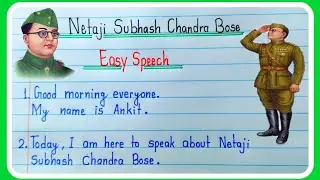 Netaji Subhash Chandra Bose
Easy Speech
1. Good morning everyone.
My name is Ankit.
2. Today, I am here to speak about Netaji
Subhash Chandra Bose.